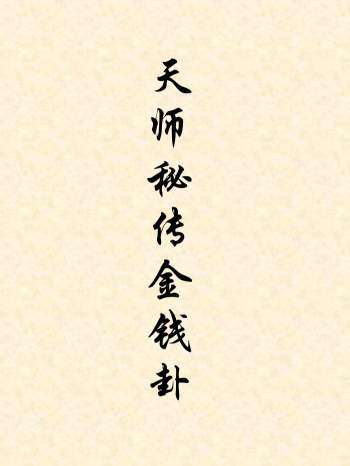 天师秘传金钱卦